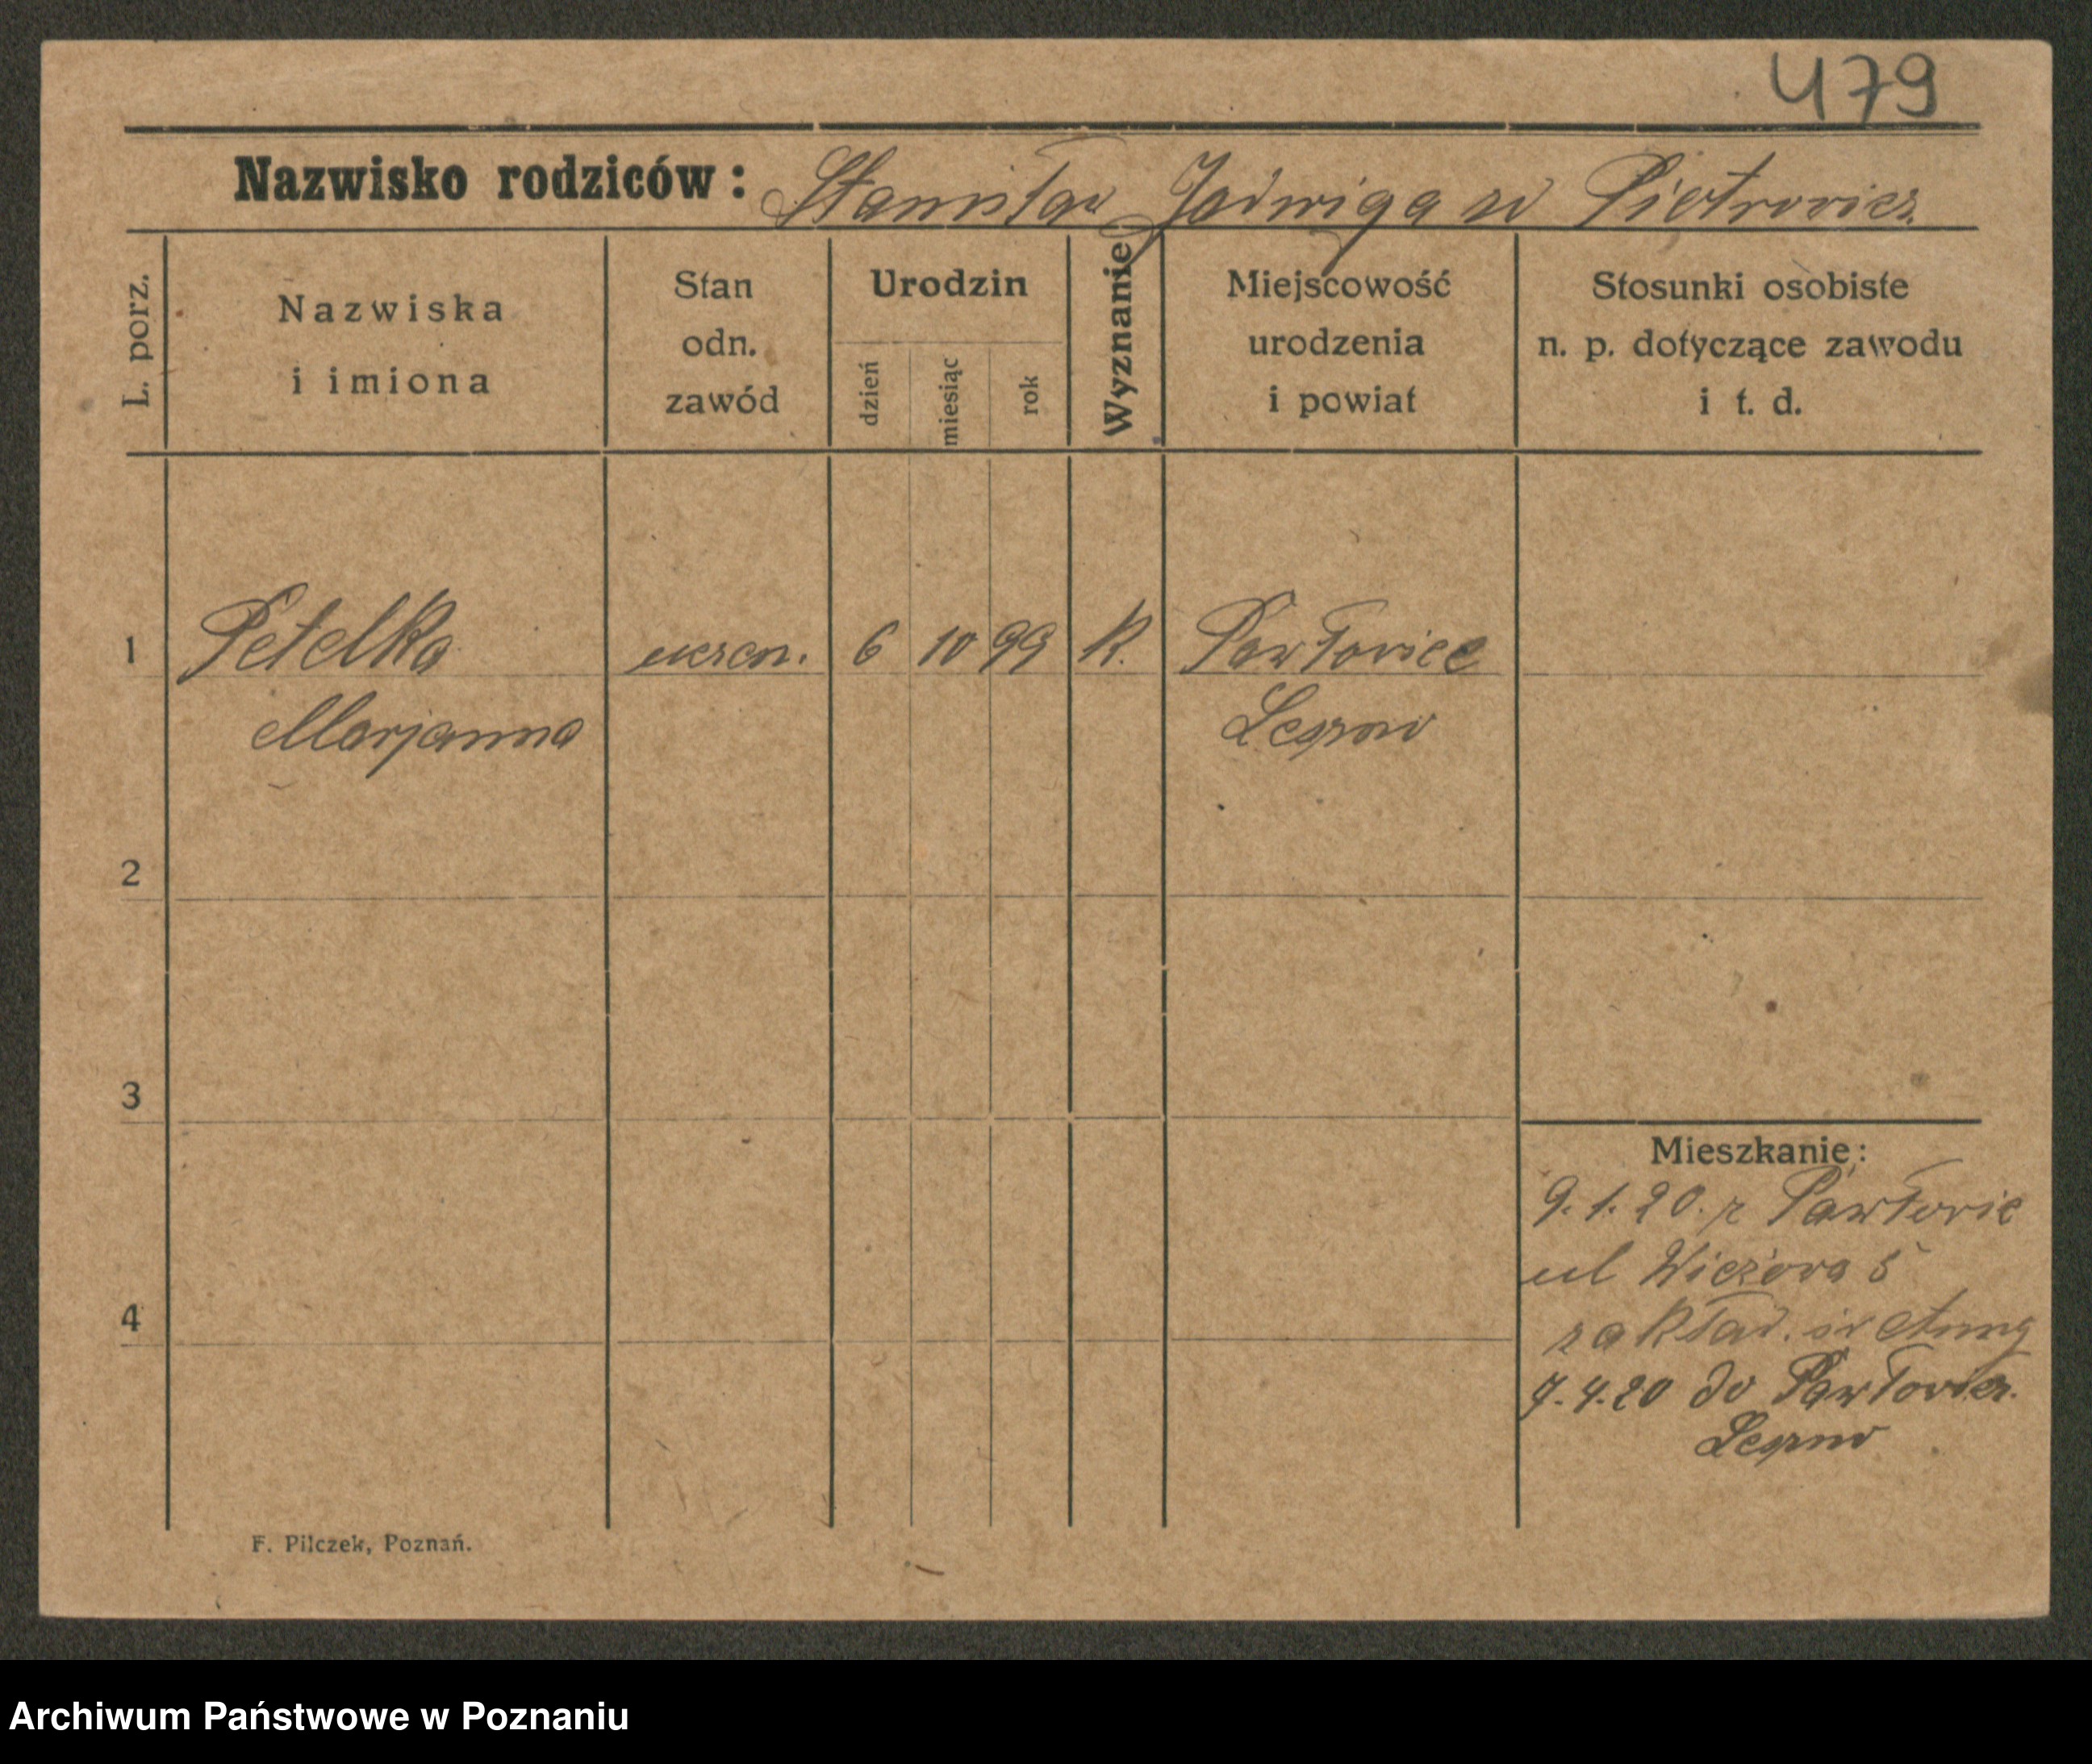 479
Nazwisko rodziców: Stanisław Jadwiga w Pietrovicz
L. porz.
Nazwiska
i imiona
Stan
odn.
zawód
Urodzin
dzień
miesiąc
rok
Wyznanie
Miejscowość
urodzenia
i powiat
Stosunki osobiste
n. p. dotyczące zawodu
i t. d.
1 Petelka uczen. 6 10 99 K. Pawłovice
Marjanna
2
3
4
Mieszkanie:
9.1.20. z Pawłovic
ul Wieżova 5
zakład. św Anny
7.4.20 do Pawłovicz.
F. Pilczek, Poznań.
Archiwum Państwowe w Poznaniu